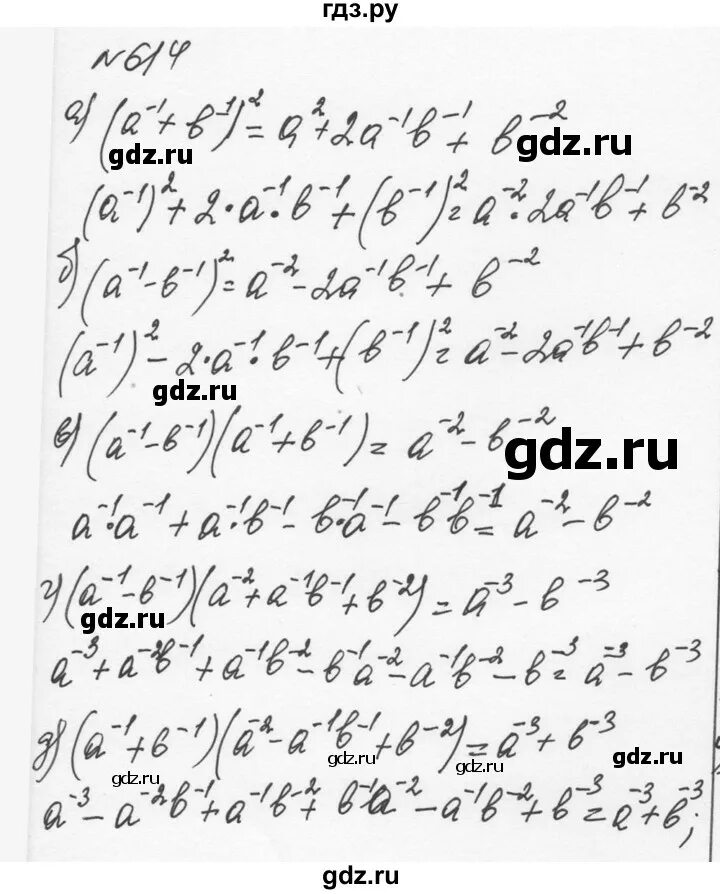 гдз.ру
№614
а) (a⁻¹ + b⁻¹)² = a² + 2a⁻¹b⁻¹ + b⁻²
gdz.ru gdz.ru
(a⁻¹)² + 2·a⁻¹·b⁻¹ + (b⁻¹)² = a⁻²·2a⁻¹b⁻¹ + b⁻²
б) (a⁻¹ - b⁻¹)² = a⁻² - 2a⁻¹b⁻¹ + b⁻²
(a⁻¹)² - 2·a⁻¹·b⁻¹ + (b⁻¹)² = a⁻² - 2a⁻¹b⁻¹ + b⁻²
gdz.ru
в) (a⁻¹ - b⁻¹)(a⁻¹ + b⁻¹) = a⁻² - b⁻²
gdz.ru
a⁻¹·a⁻¹ + a⁻¹·b⁻¹ - b⁻¹·a⁻¹ - b⁻¹b⁻¹ = a⁻² - b⁻²
г) (a⁻¹ - b⁻¹)(a⁻² + a⁻¹b⁻¹ + b⁻²) = a⁻³ - b⁻³
gdz.ru gdz.ru
a⁻³ + a⁻²b⁻¹ + a⁻¹b⁻² - b⁻¹a⁻² - a⁻¹b⁻² - b⁻³ = a⁻³ - b⁻³
д) (a⁻¹ + b⁻¹)(a⁻² - a⁻¹b⁻¹ + b⁻²) = a⁻³ + b⁻³
gdz.ru gdz.ru gdz.ru
a⁻³ - a⁻²b⁻¹ + a⁻¹b⁻² + b⁻¹a⁻² - a⁻¹b⁻² + b⁻³ = a⁻³ + b⁻³;
gdz.ru